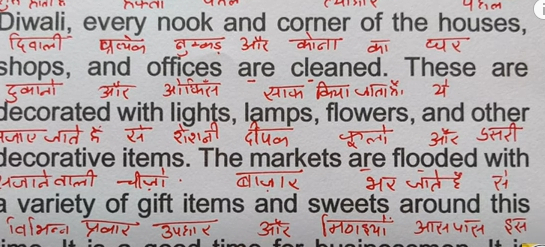 Diwali, every nook and corner of the houses,
दिवाली प्रत्येक नुक्कड़ और कोना का घर
shops, and offices are cleaned. These are
दुकानों और ऑफिस साफ किया जाता है. ये
decorated with lights, lamps, flowers, and other
सजाए जाते हैं से रोशनी दीपक फूलों और दूसरी
decorative items. The markets are flooded with
सजाने वाली चीज़ों. बाज़ार भर जाते है से
a variety of gift items and sweets around this
विभिन्न प्रकार उपहार और मिठाइयों आसपास इस
time. It is a good time for businessmen. It i